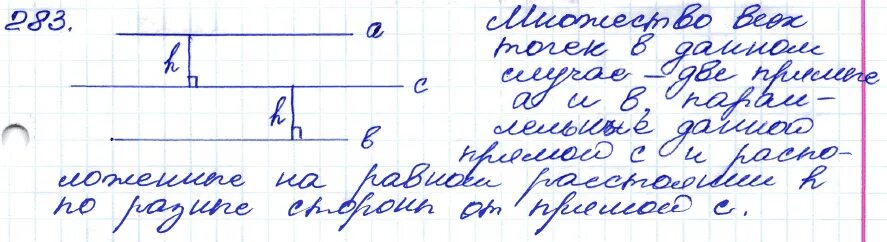 283.
a
h
c
h
в
Множество всех
точек в данном
случае – две прямые
а и в, парал-
лельные данной
прямой с и распо-
ложенные на равном расстоянии h
по разные стороны от прямой с.